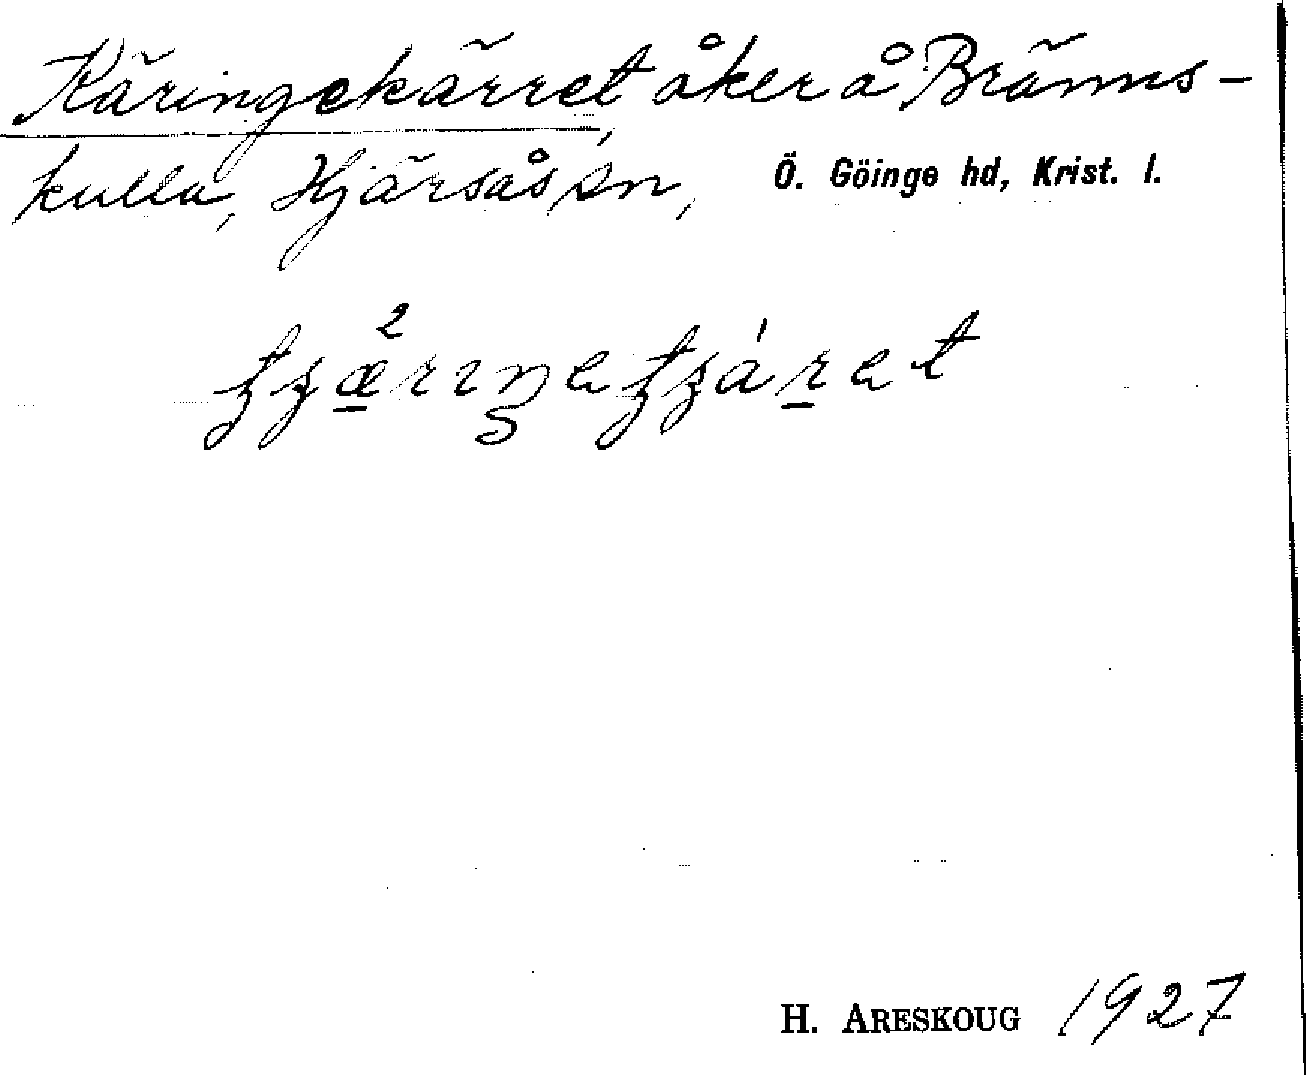 Käringekärret, åker å Bräms-
kulla, Hjärsås sn, Ö. Göinge hd, Krist. l.
H. ARESKOUG 1927